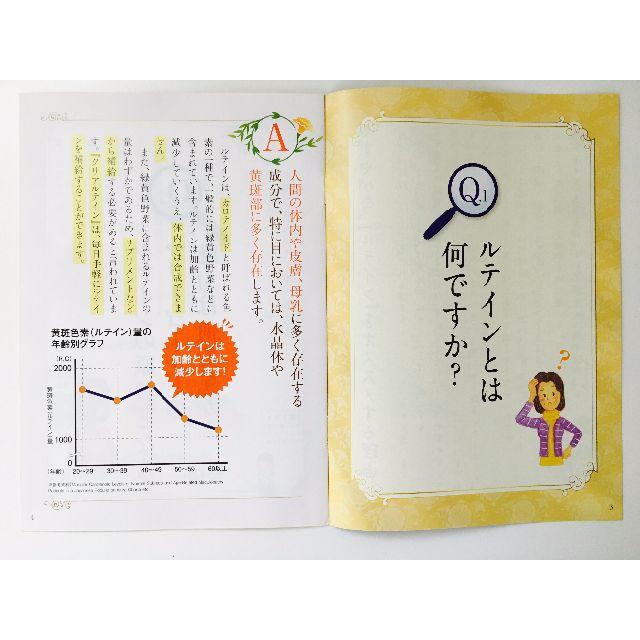 Q.1
ルテインとは
何ですか?
?
3
A
人間の体内や皮膚、母乳に多く存在する
成分で、特に目においては、水晶体や
黄斑部に多く存在します。
ルテインは、カロテノイドと呼ばれる色
素の一種で、一般的には緑黄色野菜などに
含まれています。ルテインは加齢とともに
減少していくうえ、体内では合成できま
せん。
また、緑黄色野菜に含まれるルテインの
量はわずかであるため、サプリメントなど
から補給する必要があると言われていま
す。『クリアルテイン』は、毎日手軽にルテイ
ンを補給することができます。
黄斑色素(ルテイン)量の
年齢別グラフ
ルテインは
加齢とともに
減少します!
(R.C)
2000
1000
0
黄斑色素(ルテイン)量
(年齢)
20〜29
30〜39
40〜49
50〜59
60以上
Macular Carotenoid Levels of Normal Subjects and Age-Related Maculopathy
4